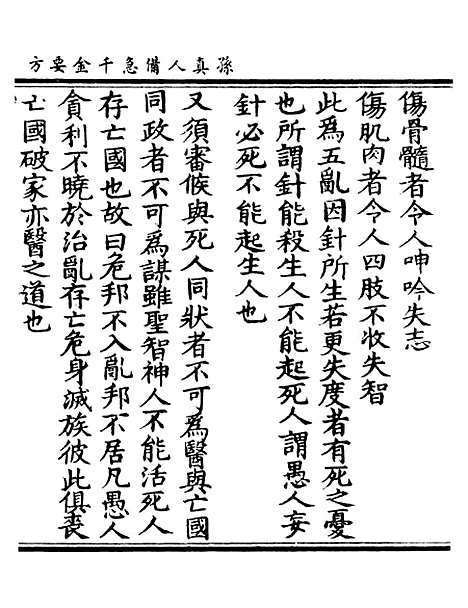 孫真人備急千金要方
傷骨髓者令人呻吟失志
傷肌肉者令人四肢不收失智
此為五亂因針所生若更失度者有死之憂
也所謂針能殺生人不能起死人謂愚人妄
針必死不能起生人也
又須審候與死人同狀者不可為醫與亡國
同政者不可為謀雖聖智神人不能活死人
存亡國也故曰危邦不入亂邦不居凡愚人
貪利不曉於治亂存亡危身滅族彼此俱喪
亡國破家亦醫之道也